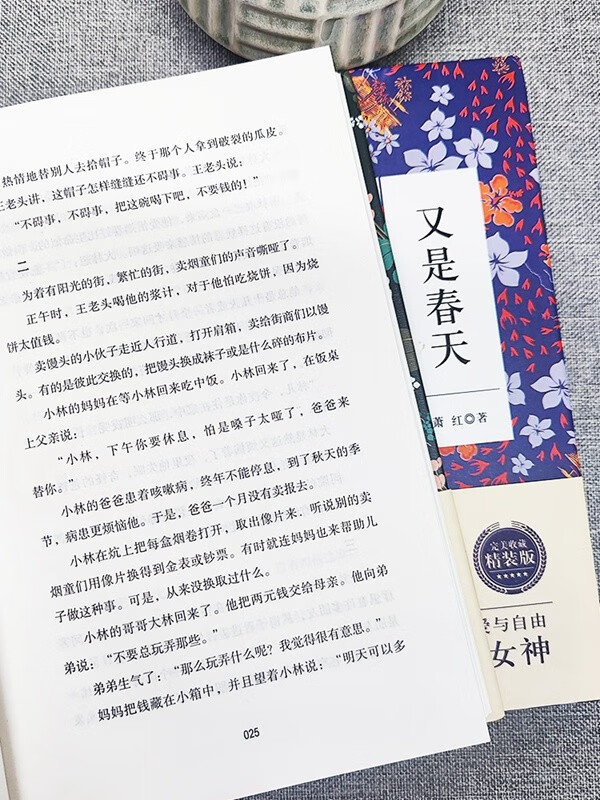 热情地替别人去拾帽子。终于那个人拿到破裂的瓜皮。
王老头讲，这帽子怎样缝缝还不碍事。王老头说：
“不碍事，不碍事，把这碗喝下吧，不要钱的！”
二
为着有阳光的街，繁忙的街，卖烟童们的声音嘶哑了。
正午时，王老头喝他的浆计，对于他怕吃烧饼，因为烧
饼太值钱。
卖馒头的小伙子走近人行道，打开肩箱，卖给街商们以馒
头。有的是彼此交换的，把馒头换成袜子或是什么碎的布片。
小林的妈妈在等小林回来吃中饭。小林回来了，在饭桌
上父亲说：
“小林，下午你要休息，怕是嗓子太哑了，爸爸来
替你。”
小林的爸爸患着咳嗽病，终年不能停息，到了秋天的季
节，病患更烦恼他。于是，爸爸一个月没有卖报去。
小林在炕上把每盒烟卷打开，取出像片来，听说别的卖
烟童们用像片换得到金表或钞票。有时就连妈妈也来帮助儿
子做这种事。可是，从来没换取过什么。
小林的哥哥大林回来了。他把两元钱交给母亲。他向弟
弟说：“不要总玩弄那些。”
弟弟生气了：“那么玩弄什么呢？我觉得很有意思。”
妈妈把钱藏在小箱中，并且望着小林说：“明天可以多
025
又是春天
萧 红◎著
完美收藏
精装版
爱与自由
女神